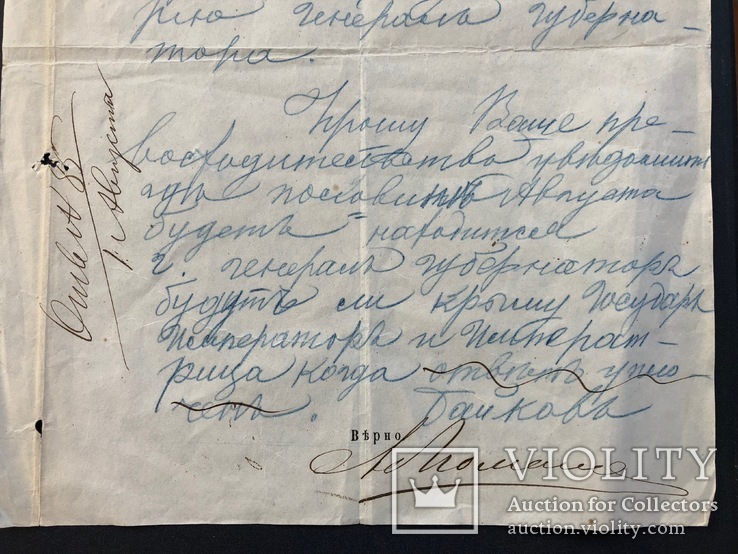 рию генералъ губерна-
тора.
Прошу Ваше пре-
восходительство увѣдомить
гдѣ половинѣ Августа
будетъ находится
г. генералъ губернаторъ
будутъ ли крыму Государь
Императоръ и Импера-
рица когда отвѣтъ упло-
ченъ. Байковъ
Вѣрно
1. Августа
VIOLITY
Auction for Collectors
auction.violity.com